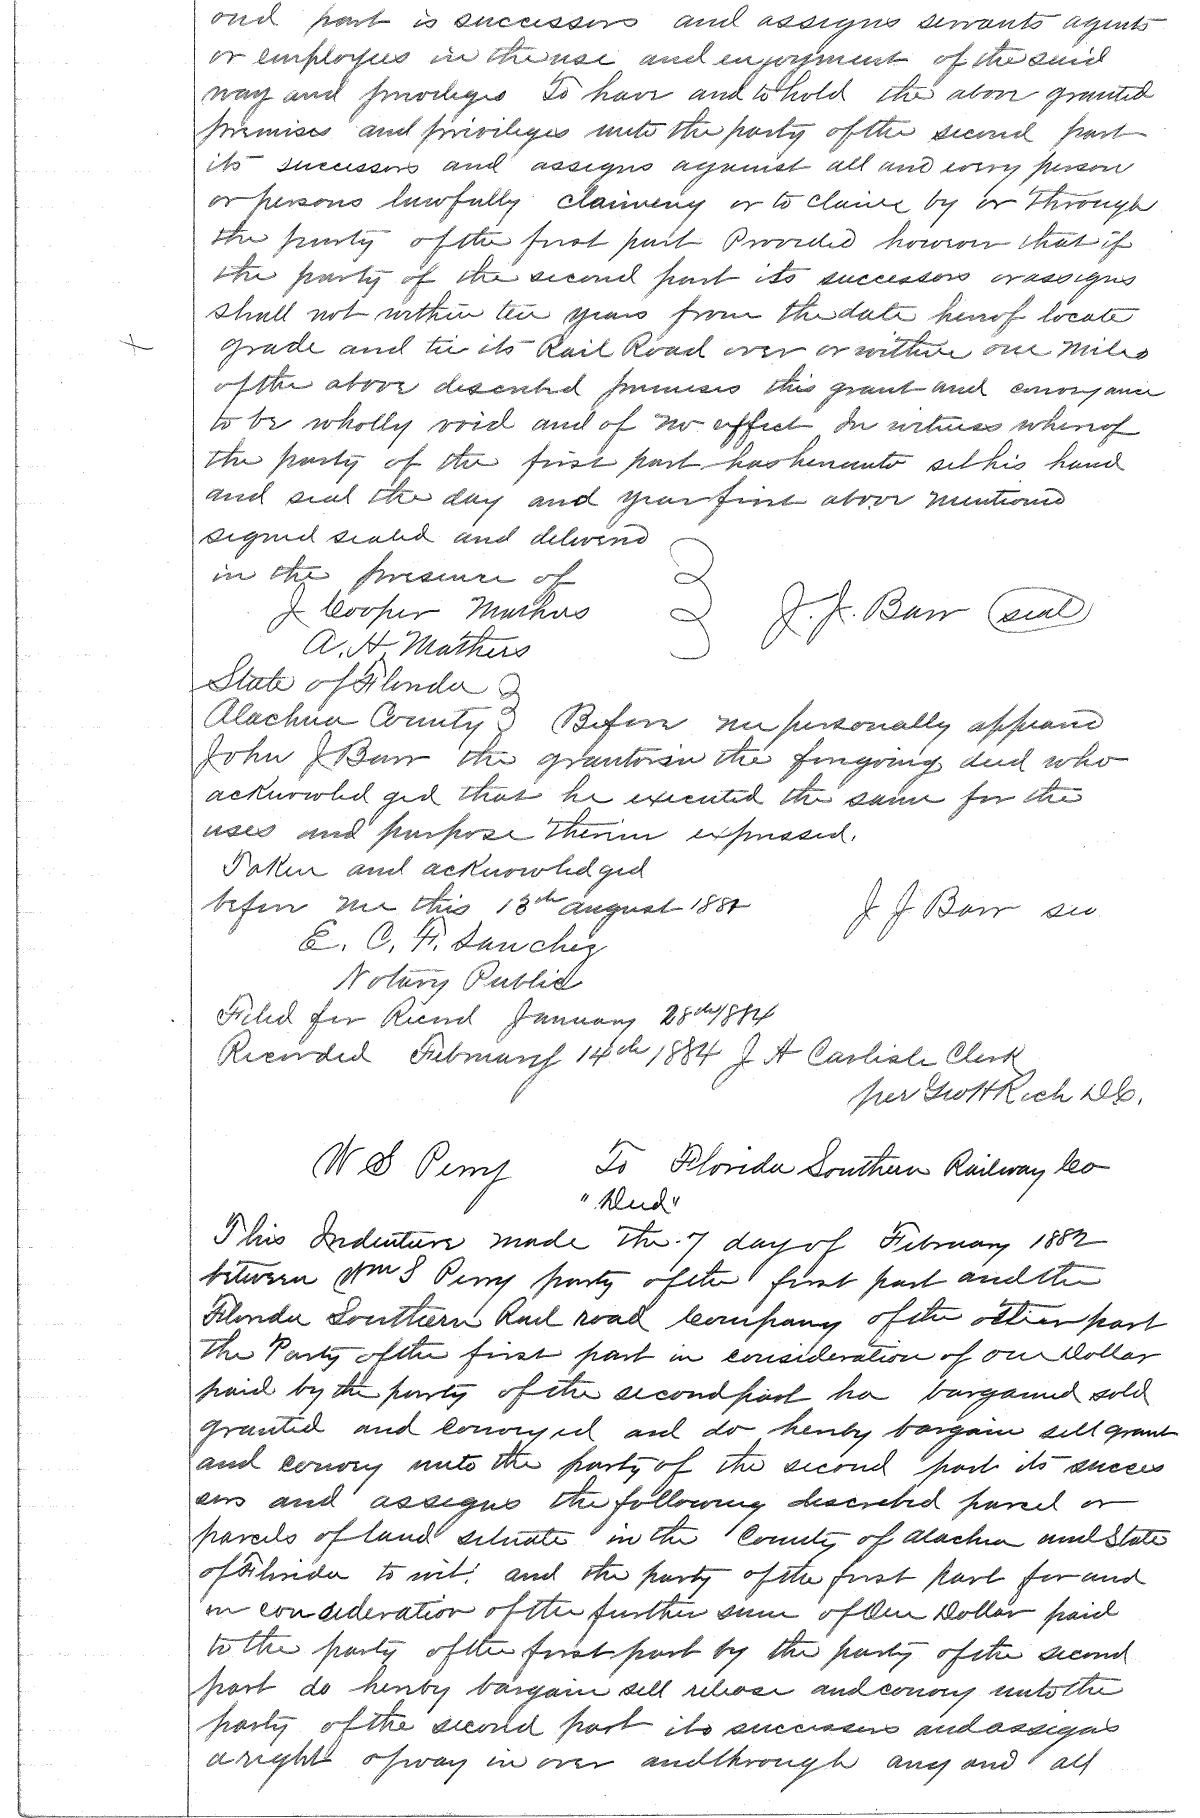 ond part is successors and assigns servants agents
or employees in the use and enjoyment of the said
way and privileges To have and to hold the above granted
premises and privileges unto the party of the second part
its successors and assigns against all and every person
or persons lawfully claiming or to claim by or through
the party of the first part Provided however that if
the party of the second part its successors or assigns
shall not within ten years from the date hereof locate
grade and tie its Rail Road over or within one miles
of the above described premises this grant and conveyance
to be wholly void and of no effect In witness whereof
the party of the first part has hereunto set his hand
and seal the day and year first above mentioned
signed sealed and delivered
in the presence of
J Cooper Mathers
J. J. Barr seal
A. H. Mathers
State of Florida
Alachua County Before me personally appeared
John J Barr the grantor in the foregoing deed who
acknowledged that he executed the same for the
uses and purpose therein expressed.
Taken and acknowledged
before me this 13th august 188
J J Barr
E. C. F. Sanchez
Notary Public
Filed for Record January 28th 1884
Recorded February 14th 1884 J A Carlisle Clerk
per Geo H Rich D.C.
W S Perry To Florida Southern Railway Co
"Deed"
This Indenture made the 7 day of February 1882
between Wm S Perry party of the first part and the
Florida Southern Rail road Company of the other part
the Party of the first part in consideration of one Dollar
paid by the party of the second part ha bargained sold
granted and conveyed and do hereby bargain sell grant
and convey unto the party of the second part its succes
sors and assigns the following described parcel or
parcels of land situate in the County of Alachua and State
of Florida to wit: and the party of the first part for and
in consideration of the further sum of One Dollar paid
to the party of the first part by the party of the second
part do hereby bargain sell release and convey unto the
party of the second part its successors and assigns
a right of way in over and through any and all